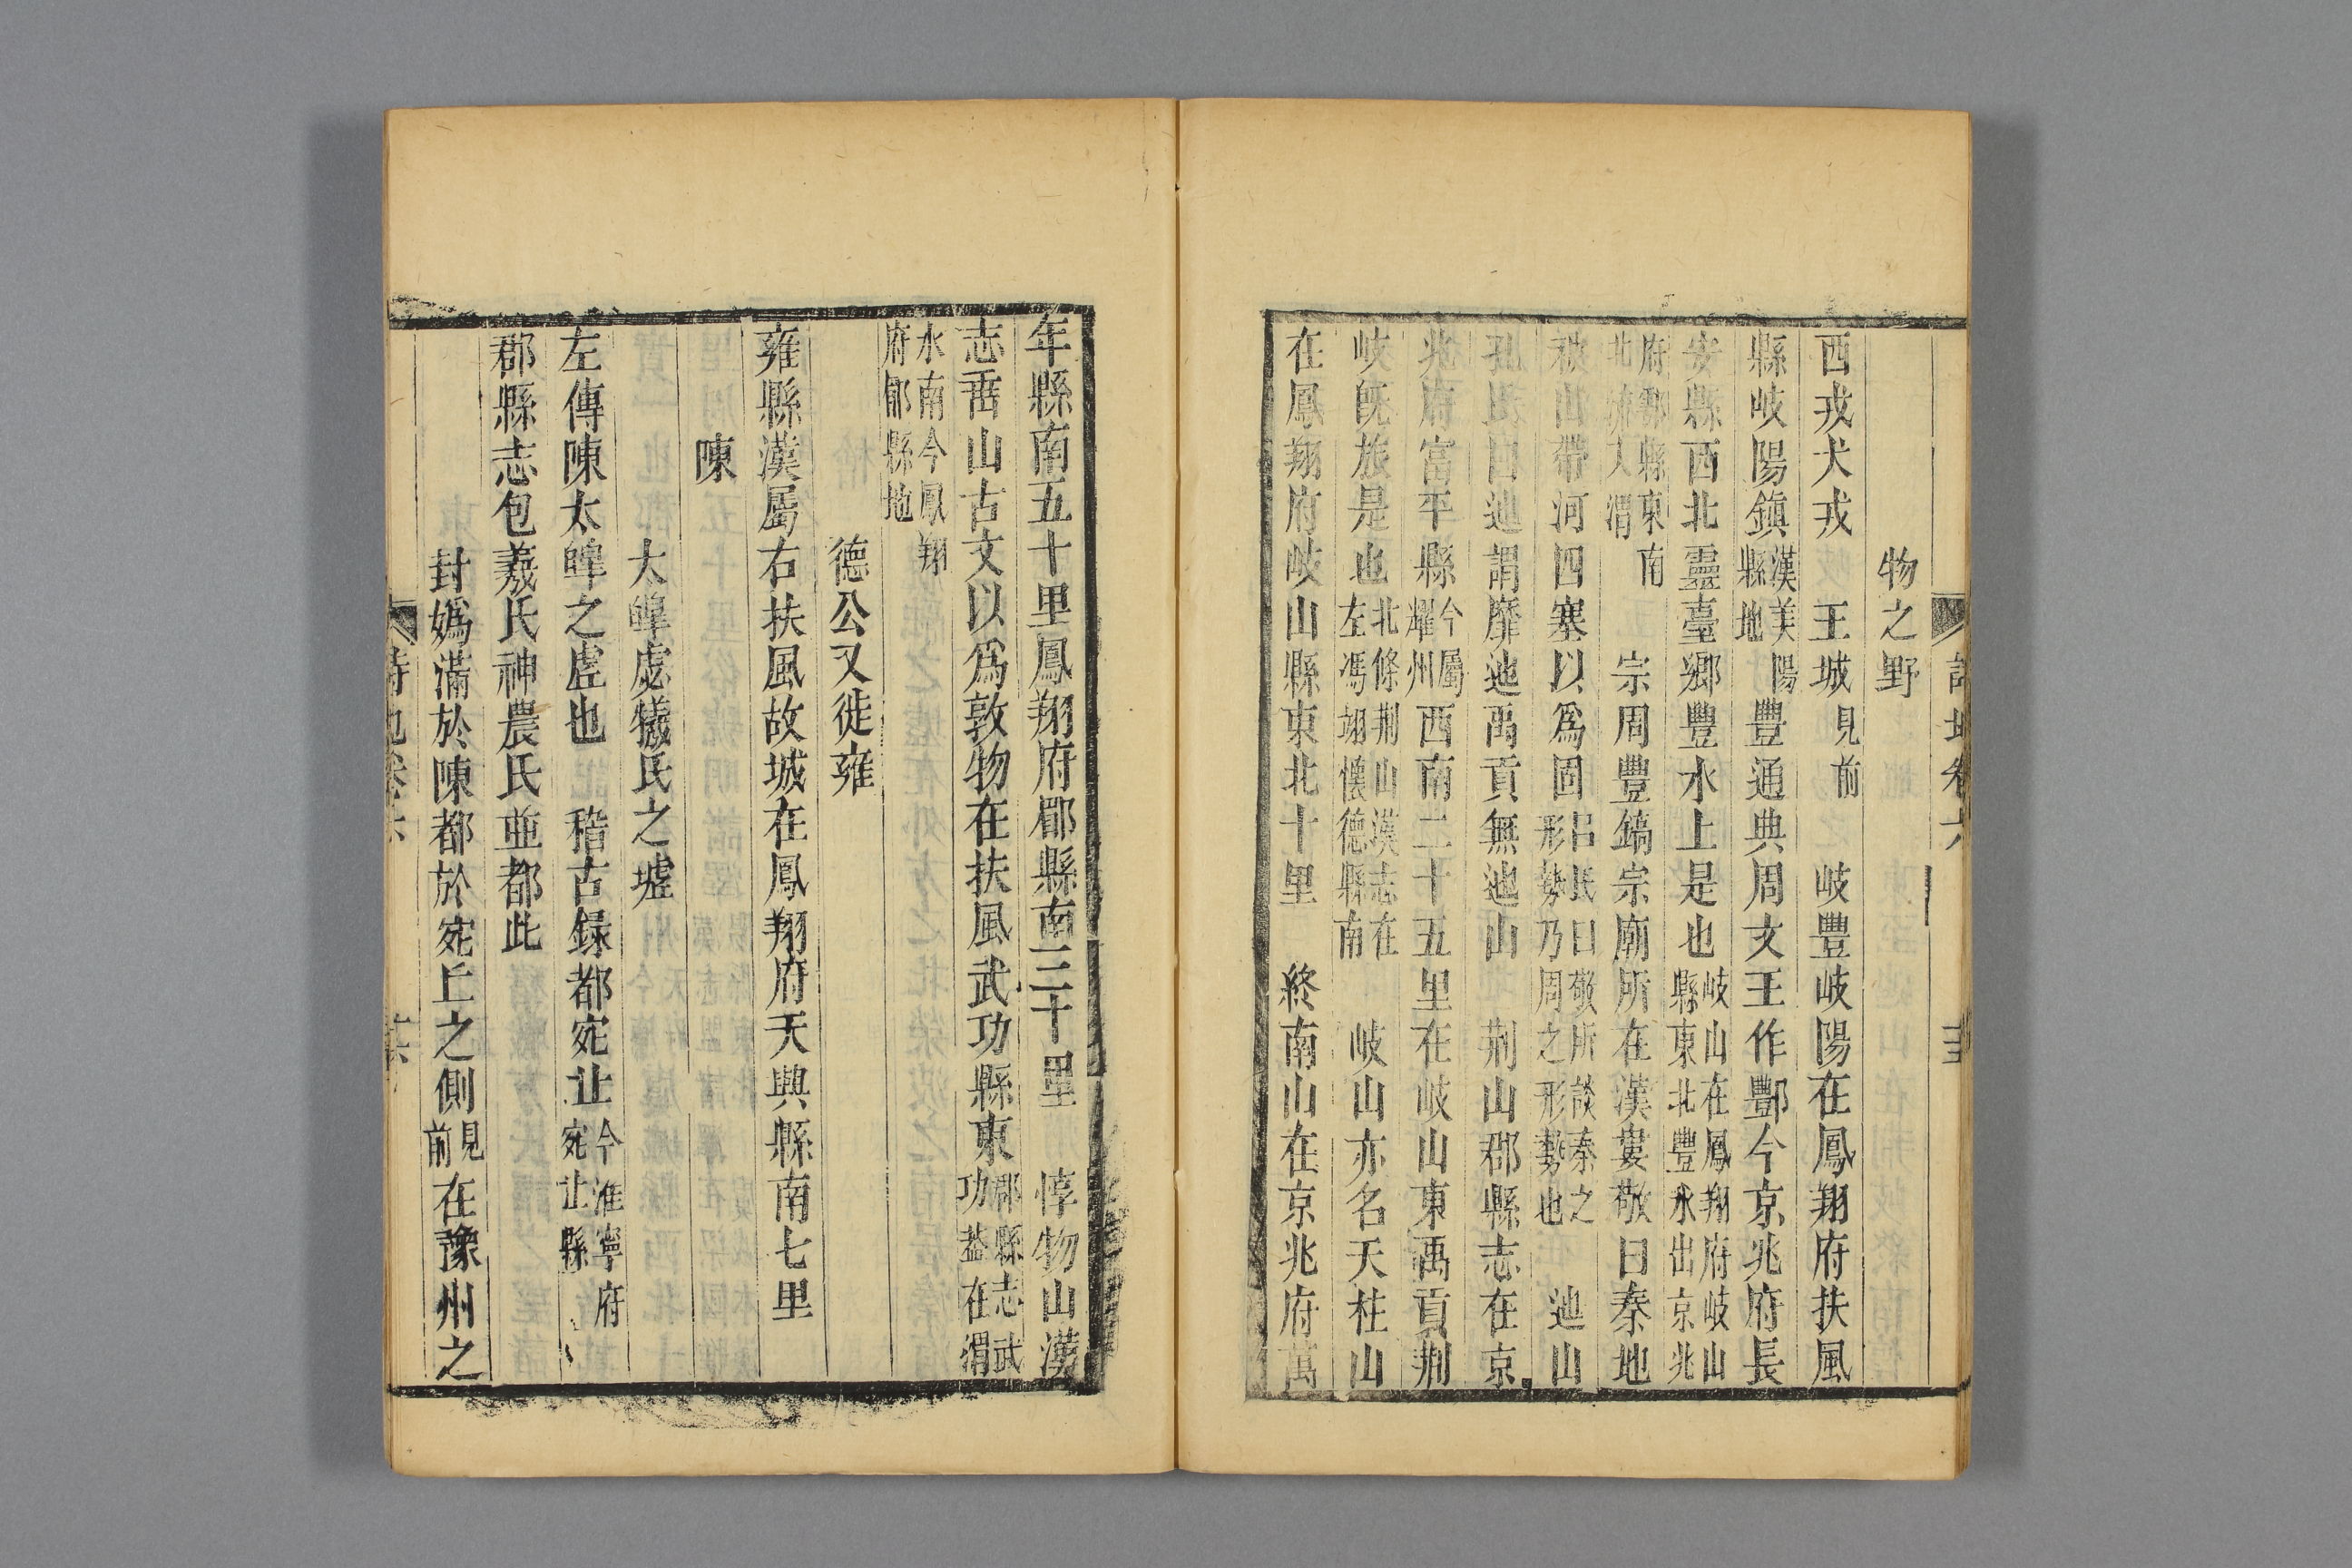 物之野
西戎犬戎　王城見前　岐豐岐陽在鳳翔府扶風
縣岐陽鎮漢美陽縣地　豐通典周文王作酆今京兆府長
安縣西北靈臺鄉豐水上是也岐山在鳳翔府岐山縣東北豐水出京兆
府鄠縣東南北流入渭　宗周豐鎬宗廟所在漢婁敬曰秦地
被山帶河四塞以爲固呂氏曰敬所談秦之形勢乃周之形勢也　迆山
孔氏曰迆謂靡迆禹貢無迆山　荆山郡縣志在京
兆府富平縣今屬耀州西南二十五里在岐山東禹貢荆
岐旣旅是也北條荆山漢志在左馮翊懷德縣南　岐山亦名天柱山
在鳳翔府岐山縣東北十里　終南山在京兆府萬
年縣南五十里鳳翔府郿縣南三十里　惇物山漢
志垂山古文以爲敦物在扶風武功縣東郡縣志武功蓋在渭
水南今鳳翔府郿縣地
德公又徙雍
雍縣漢屬右扶風故城在鳳翔府天興縣南七里
陳
大皥處犧氏之墟
左傳陳太皥之虛也　稽古録都宛丘今淮寧府宛丘縣
郡縣志包羲氏神農氏並都此
封嬀滿於陳都於宛丘之側見前在豫州之